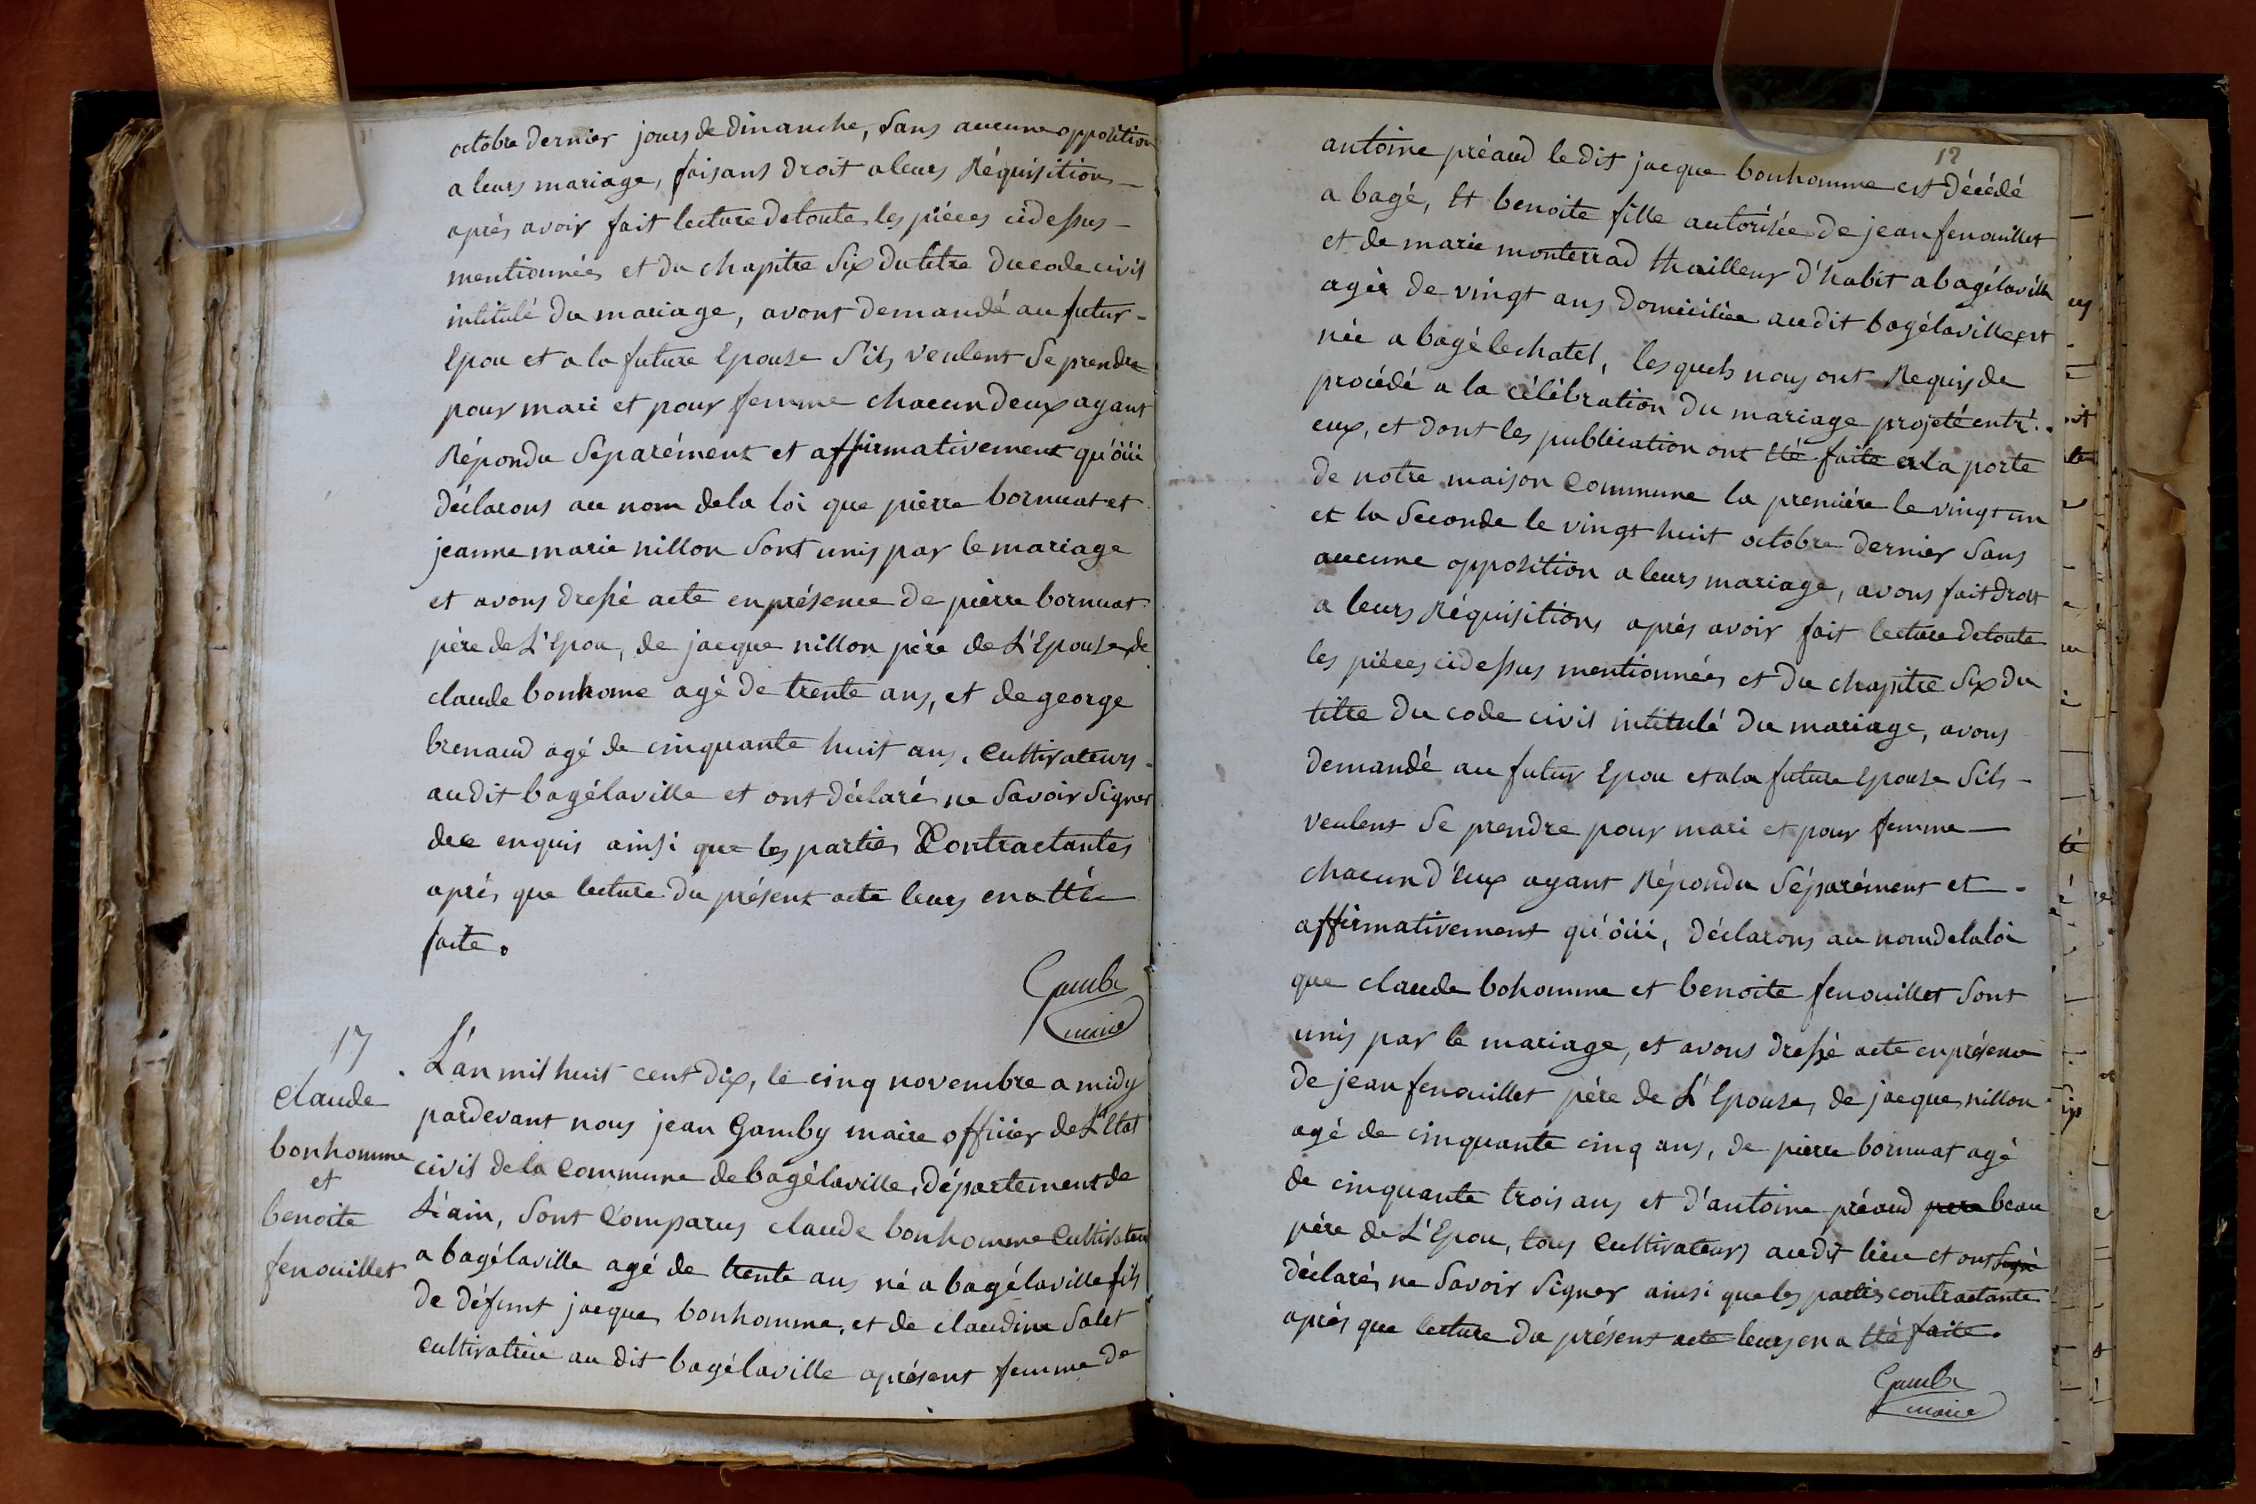 octobre dernier jours de dimanche, sans aucune opposition
a leurs mariage, faisans droit a leurs Réquisitions
après avoir fait lecture de toute les piéces cidessus
mentionnées et du chapitre Six du titre du code civil
intitulé du mariage, avons demandé au futur
Epou et a la future Epouse S'ils veulent Se prendre
pour mari et pour femme chacun deux ayant
Répondu Séparément et affirmativement qu'öüi
déclarons au nom de la loi que pierre bornuat et
jeanne marie nillon Sont unis par le mariage
et avons dressé acte en présence de pierre bornuat
père de L'Epou, de jacque nillon père de L'Epouse, de
claude bonhome agé de trente ans, et de george
brenaud agé de cinquante huit ans, Cultivateurs
audit bagélaville et ont déclaré ne Savoir Signer
de ce enquis ainsi que les parties Contractantes
après que lecture du présent acte leurs en a Eté
faite.
Gamby
maire
17
claude
bonhomme
et
benoite
fenouillet
L'an mil huit cent dix, le cinq novembre a midy
pardevant nous jean Gamby maire officier de L'Etat
civil de la Commune de bagélaville, département de
L'ain, Sont Comparus claude bonhomme Cultivateur
a bagélaville agé de trente ans né a bagélaville fils
de défunt jacque bonhomme, et de claudine Salet
Cultivatrice au dit bagélaville aprésent femme de
12
antoine préaud le dit jacque bonhomme est décédé
a bagé, Et benoite fille autorisée de jean fenouillet
et de marie monterrad thailleur d'habit a bagélaville
agée de vingt ans domiciliée audit bagélaville et
née a bagé lechatel, lesquels nous ont Requis de
procédé a la célébration du mariage projeté entr'
eux, et dont les publication ont Eté faite a la porte
de notre maison Commune la première le vingt un
et la Seconde le vingt huit octobre dernier Sans
aucune opposition a leurs mariage, avons fait droit
a leurs Réquisitions après avoir fait lecture de toute
les piéces cidessus mentionnées et du chapitre Six du
titre du code civil intitulé du mariage, avons
demandé au futur Epou et a la future Epouse S'ils
veulent Se prendre pour mari et pour femme
chacun d'Eux ayant Répondu Séparément et
affirmativement qu'öüi, déclarons au nom de la loi
que claude bohomme et benoite fenouillet Sont
unis par le mariage, et avons dressé acte en présence
de jean fenouillet père de L'Epouse, de jacque nillon
agé de cinquante cinq ans, de pierre bornuat agé
de cinquante trois ans et d'antoine préaud pere beau
père de L'Epou, tous Cultivateurs audit lieu et ont Signé
déclaré ne Savoir Signer ainsi que les parties contractante
après que lecture du présent acte leurs en a Eté faite.
Gamby
maire